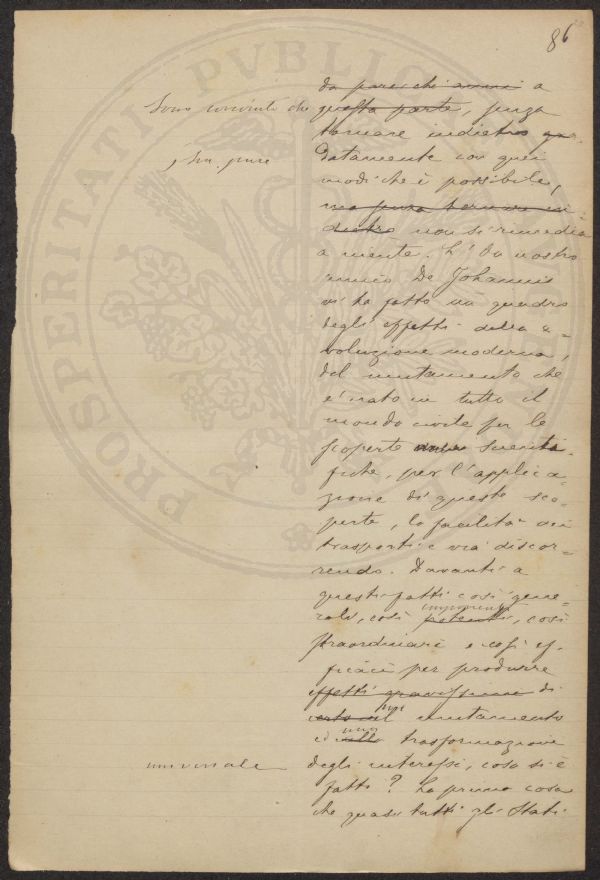 86
da parecchi anni a
Sono convinto che questa parte, senza
tornare indietro
e sia pure
datamente con quei
modi che è possibile,
ma senza tornare in-
dietro non si rimedia
a niente. L' On nostro
amico De Johannis
vi ha fatto un quadro
degli effetti della e-
voluzione moderna,
del mutamento che
è nato in tutto il
mondo civile per le
scoperte scienti-
fiche, per l'applica-
zione di queste sco-
perte, la facilità dei
trasporti e via discor-
rendo. Davanti a
questi fatti così gene-
rali, così potenti, così
imponenti
straordinari e così ef-
ficaci per produrre
effetti gravissimi di
certo un mutamento
ed una trasformazione
universale
degli interessi, cosa si è
fatti? La prima cosa
che quasi tutti gli Stati
PROSPERITATI PVBLICAE